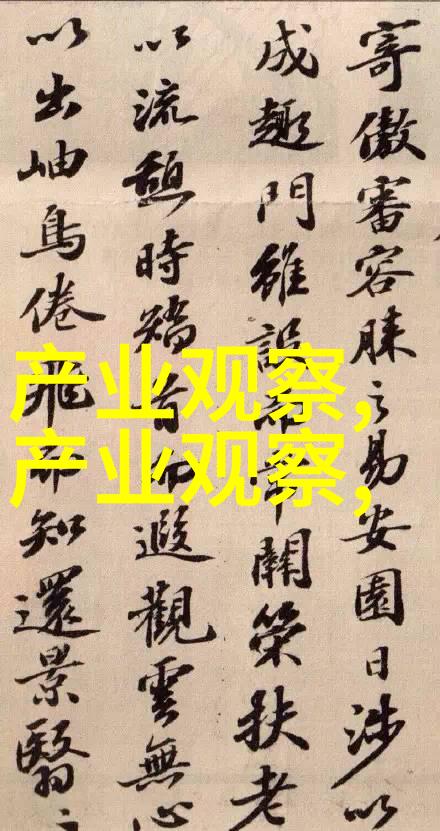 寄傲審容膝之易安園日涉以
成趣門雖設而常關策扶老
以流憩時矯首而遐觀雲無心
以出岫鳥倦飛而知還景翳
产业观察,
产业观察,